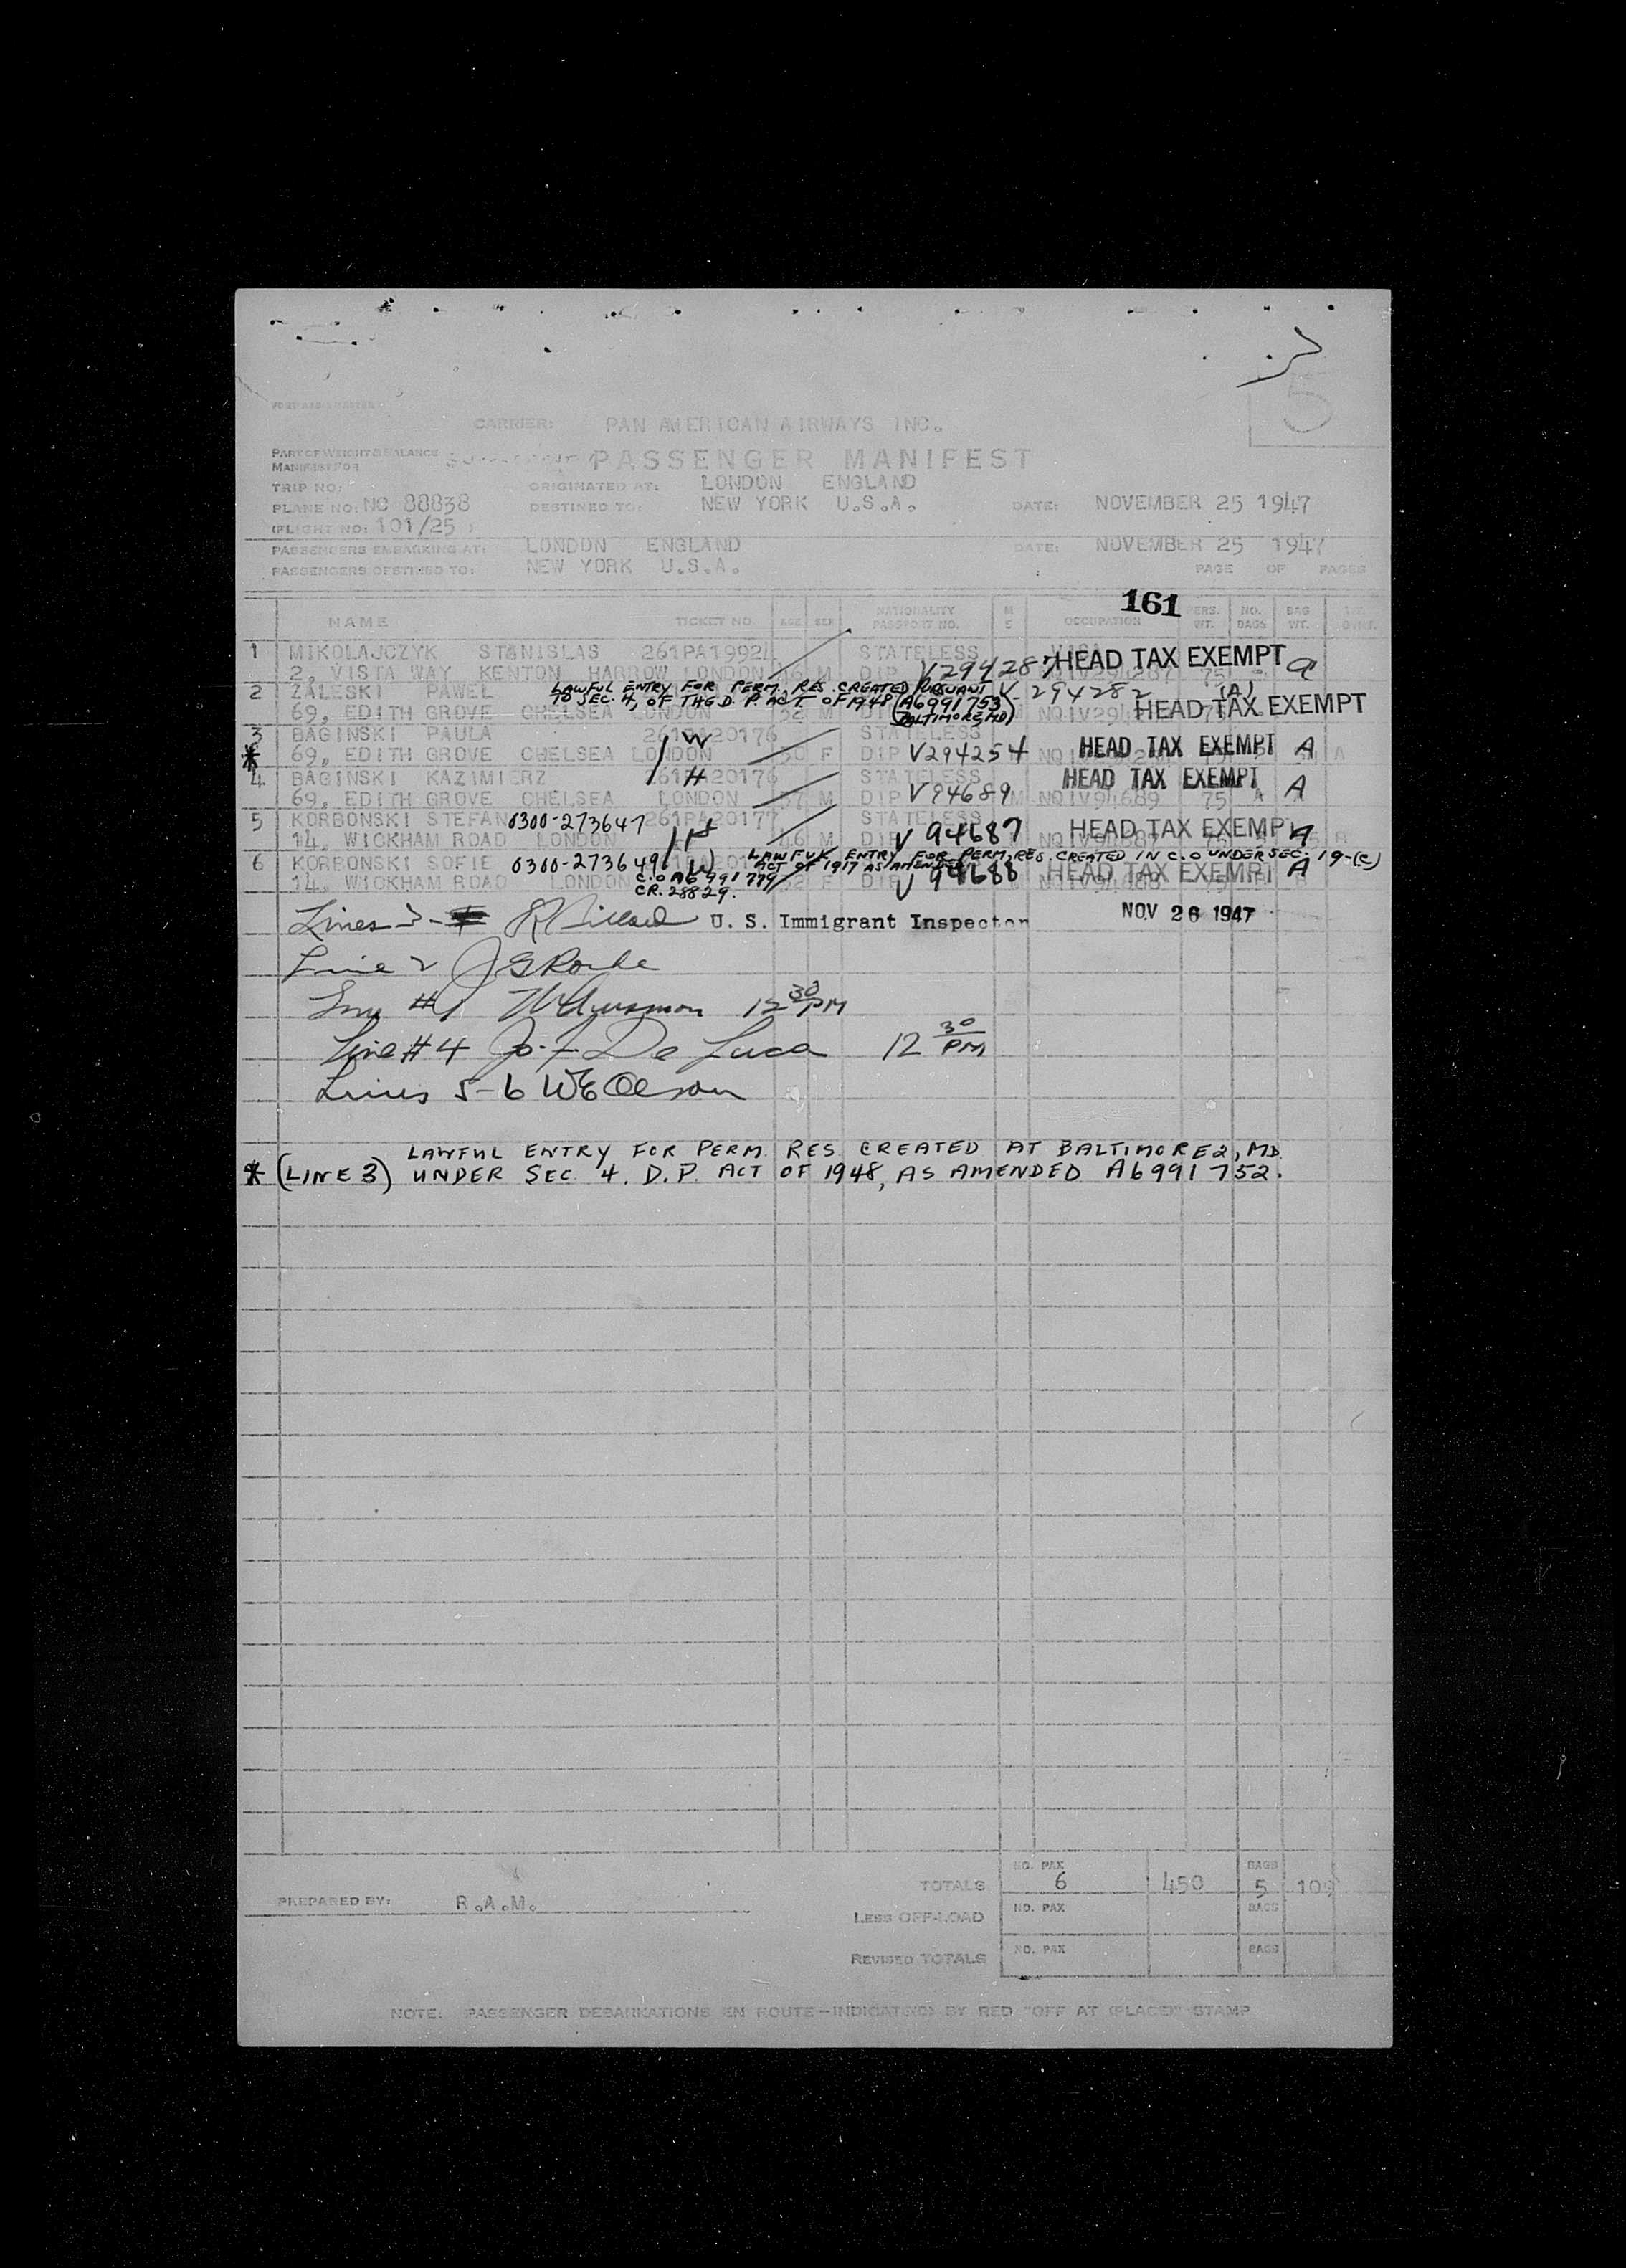 5
CARRIER: PAN AMERICAN AIRWAYS INC.
PART OF WEIGHT & BALANCE
MANIFEST FOR
PASSENGER MANIFEST
TRIP NO: ORIGINATED AT: LONDON ENGLAND
PLANE NO: NC 88838 DESTINED TO: NEW YORK U.S.A. DATE: NOVEMBER 25 1947
(FLIGHT NO: 101/25 )
PASSENGERS EMBARKING AT: LONDON ENGLAND DATE: NOVEMBER 25 1947
PASSENGERS DESTINED TO: NEW YORK U.S.A. PAGE OF PAGES
161
NAME TICKET NO. AGE SEX NATIONALITY PASSPORT NO. M S OCCUPATION PERS. WT. NO. BAGS BAG WT.
1 MIKOLAJCZYK STANISLAS 261PA19921 STATELESS HEAD TAX EXEMPT
2, VISTA WAY KENTON HARROW LONDON 46 M DIP V294287
2 ZALESKI PAWEL LAWFUL ENTRY FOR PERM. RES. CREATED PURSUANT V 294282 (A)
TO SEC. 4, OF THE D. P. ACT OF 1948 (A6991753) HEAD TAX EXEMPT
BALTIMORE, MD)
69, EDITH GROVE CHELSEA LONDON 32 M
3 BAGINSKI PAULA 261PA20176 W STATELESS
* 69, EDITH GROVE CHELSEA LONDON F DIP V294254 HEAD TAX EXEMPT A
4 BAGINSKI KAZIMIERZ 261PA20176 H STATELESS HEAD TAX EXEMPT
69, EDITH GROVE CHELSEA LONDON M DIP V94689 M NQIV94689 75 A
5 KORBONSKI STEFAN 0300-273647 261PA20177 STATELESS HEAD TAX EXEMPT
14, WICKHAM ROAD LONDON 46 M DIP V 94687 A
6 KORBONSKI SOFIE 0300-273649 LAWFUL ENTRY FOR PERM. RES. CREATED IN C.O UNDER SEC. 19-(C)
ACT OF 1917 AS AMENDED
14, WICKHAM ROAD LONDON C.O A6 991 779 32 F DIP V 94688 HEAD TAX EXEMPT A
CR. 28829.
Lines 3- U. S. Immigrant Inspector NOV 26 1947
Line 2
#1 12 30 PM
Line #4 Jo. F. De Luca 12 30 PM
Lines 5-6 WE Olson
LAWFUL ENTRY FOR PERM. RES. CREATED AT BALTIMORE 2, MD.
* (LINE 3) UNDER SEC. 4. D.P. ACT OF 1948, AS AMENDED A6991752.
TOTALS NO. PAX 6 450 BAGS 5
PREPARED BY: R.A.M.
LESS OFF-LOAD NO. PAX BAGS
REVISED TOTALS NO. PAX BAGS
NOTE: PASSENGER DEBARKATIONS EN ROUTE—INDICATED BY RED "OFF AT (PLACE)" STAMP